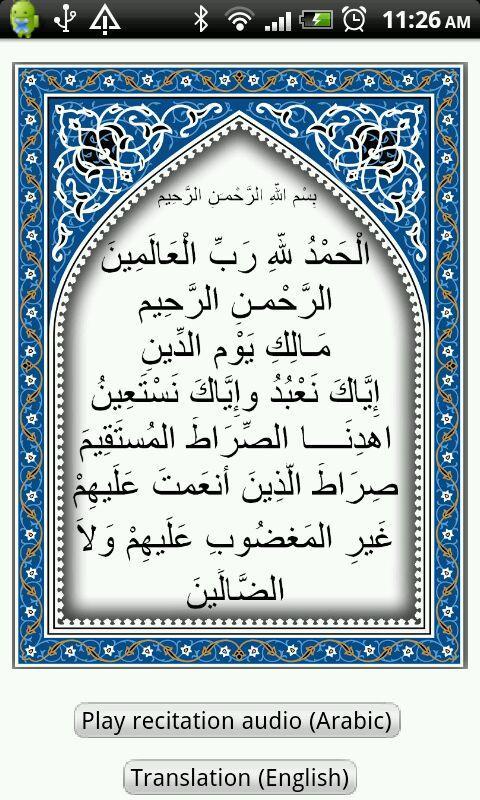 11:26 AM
بِسْمِ اللّهِ الرَّحْمـَنِ الرَّحِيمِ
الْحَمْدُ للّهِ رَبِّ الْعَالَمِينَ
الرَّحْمـنِ الرَّحِيمِ
مَـالِكِ يَوْمِ الدِّينِ
إِيَّاكَ نَعْبُدُ وإِيَّاكَ نَسْتَعِينُ
اهدِنَــــا الصِّرَاطَ المُستَقِيمَ
صِرَاطَ الَّذِينَ أَنعَمتَ عَلَيهِمْ
غَيرِ المَغضُوبِ عَلَيهِمْ وَلاَ
الضَّالِّينَ
Play recitation audio (Arabic)
Translation (English)